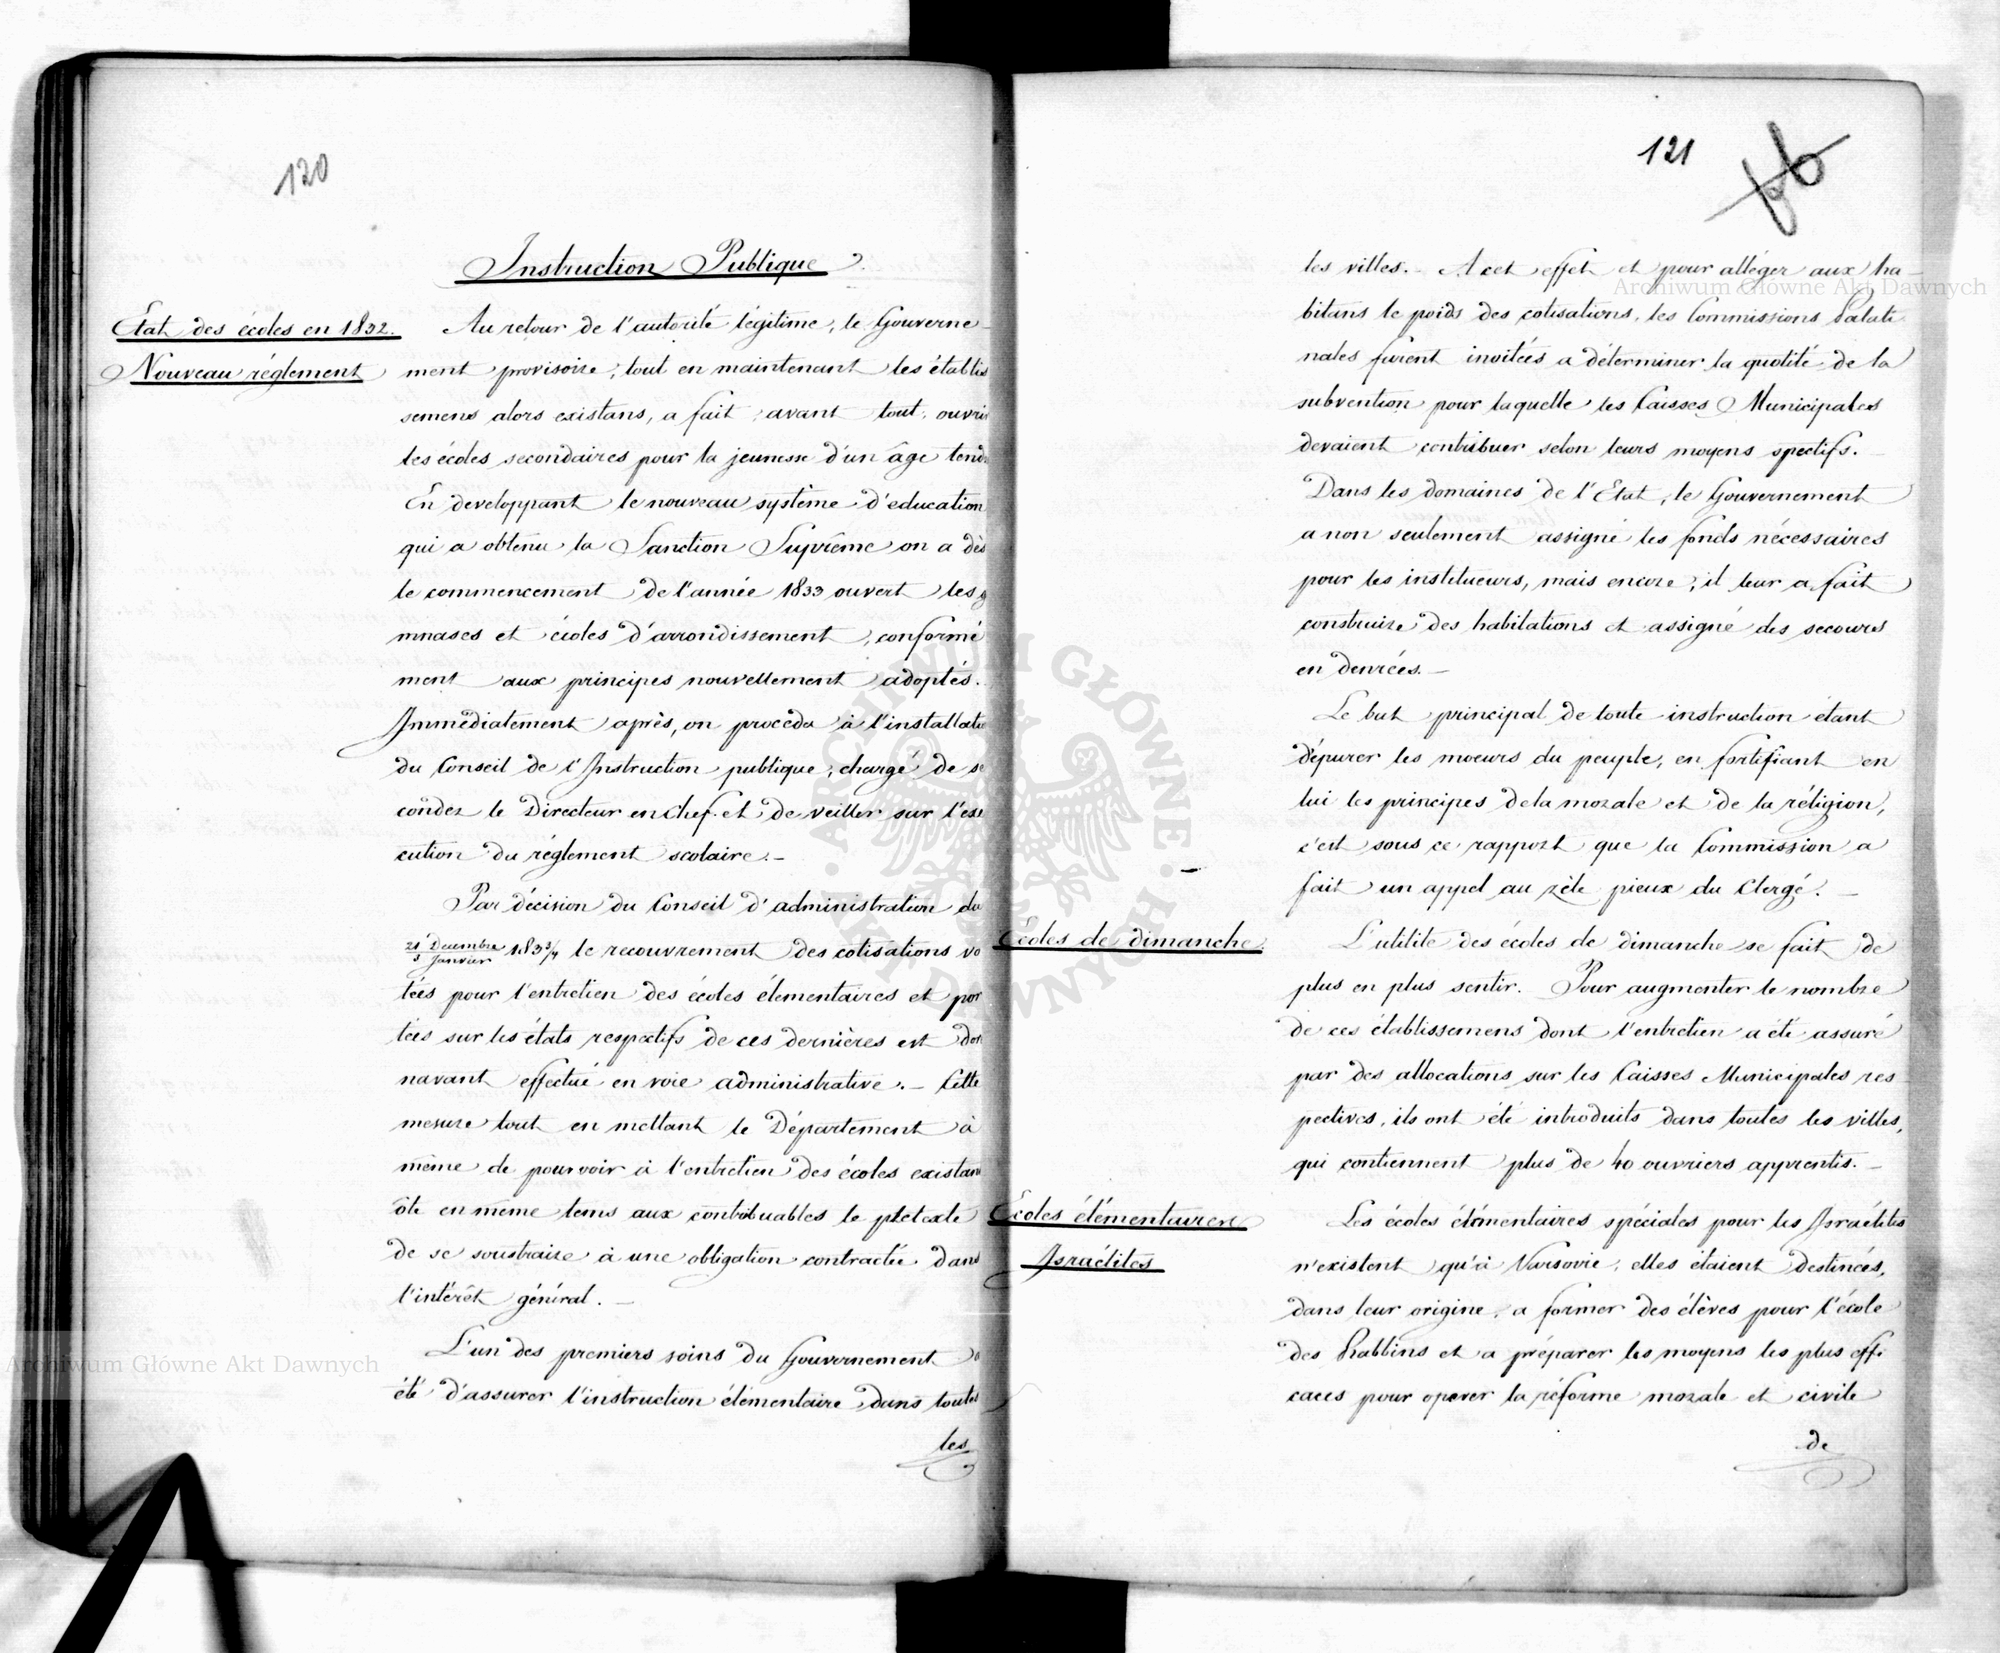 120
Instruction Publique
Etat des écoles en 1832.
Nouveau réglement
Au retour de l'autorité légitime, le Gouverne-
ment provisoire, tout en maintenant les établis
semens alors existans, a fait avant tout, ouvrir
les écoles secondaires pour la jeunesse d'un âge tendr
En developpant le nouveau système d'education
qui a obtenu la Sanction Suprême on a dès
le commencement de l'année 1833 ouvert les g
mnases et écoles d'arrondissement, conformé
ment aux principes nouvellement adoptés.
Immédiatement après, on proceda à l'installatio
du Conseil de l'Instruction publique, chargé de se
conder le Directeur en Chef et de veiller sur l'exé
cution du réglement scolaire.-
Par décision du Conseil d'administration du
21 Decembre / 3 Janvier 183 3/4 le recouvrement des cotisations vo
tées pour l'entretien des écoles élementaires et por
tées sur les états respectifs de ces dernières est dor
navant effectué en voie administrative.- Cette
mesure tout en mettant le Département à
même de pourvoir à l'entretien des écoles existan
ôte en même tems aux contribuables le prétexte
de se soustraire à une obligation contractée dans
l'intérêt général.-
L'un des premiers soins du Gouvernement a
été d'assurer l'instruction élementaire dans toutes
les
121
les villes.- A cet effet et pour alléger aux ha-
bitans le poids des cotisations, les Commissions Palati
nales furent invitées a déterminer la quotité de la
subvention pour laquelle les Caisses Municipales
devaient contribuer selon leurs moyens spectifs.-
Dans les domaines de l'Etat, le Gouvernement
a non seulement assigné les fonds nécessaires
pour les institueurs, mais encore, il leur a fait
construire des habitations et assigné des secours
en denrées.-
Le but principal de toute instruction étant
d'épurer les moeurs du peuple, en fortifiant en
lui les principes de la morale et de la réligion,
c'est sous ce rapport que la Commission a
fait un appel au zèle pieux du Clergé.-
Écoles de dimanche.
L'utilite des écoles de dimanche se fait de
plus en plus sentir. Pour augmenter le nombre
de ces établissemens dont l'entretien a été assuré
par des allocations sur les Caisses Municipales res
pectives, ils ont été introduits dans toutes les villes,
qui contiennent plus de 40 ouvriers apprentis.-
Ecoles élémentaires
Israélites
Les écoles élémentaires spéciales pour les Israélites
n'existent qu'à Varsovie, elles étaient destinées,
dans leur origine, a former des élèves pour l'école
des Rabbins et a préparer les moyens les plus effi
caces pour operer la réforme morale et civile
de
Archiwum Główne Akt Dawnych
Archiwum Główne Akt Dawnych
ARCHIWUM GŁÓWNE AKT DAWNYCH